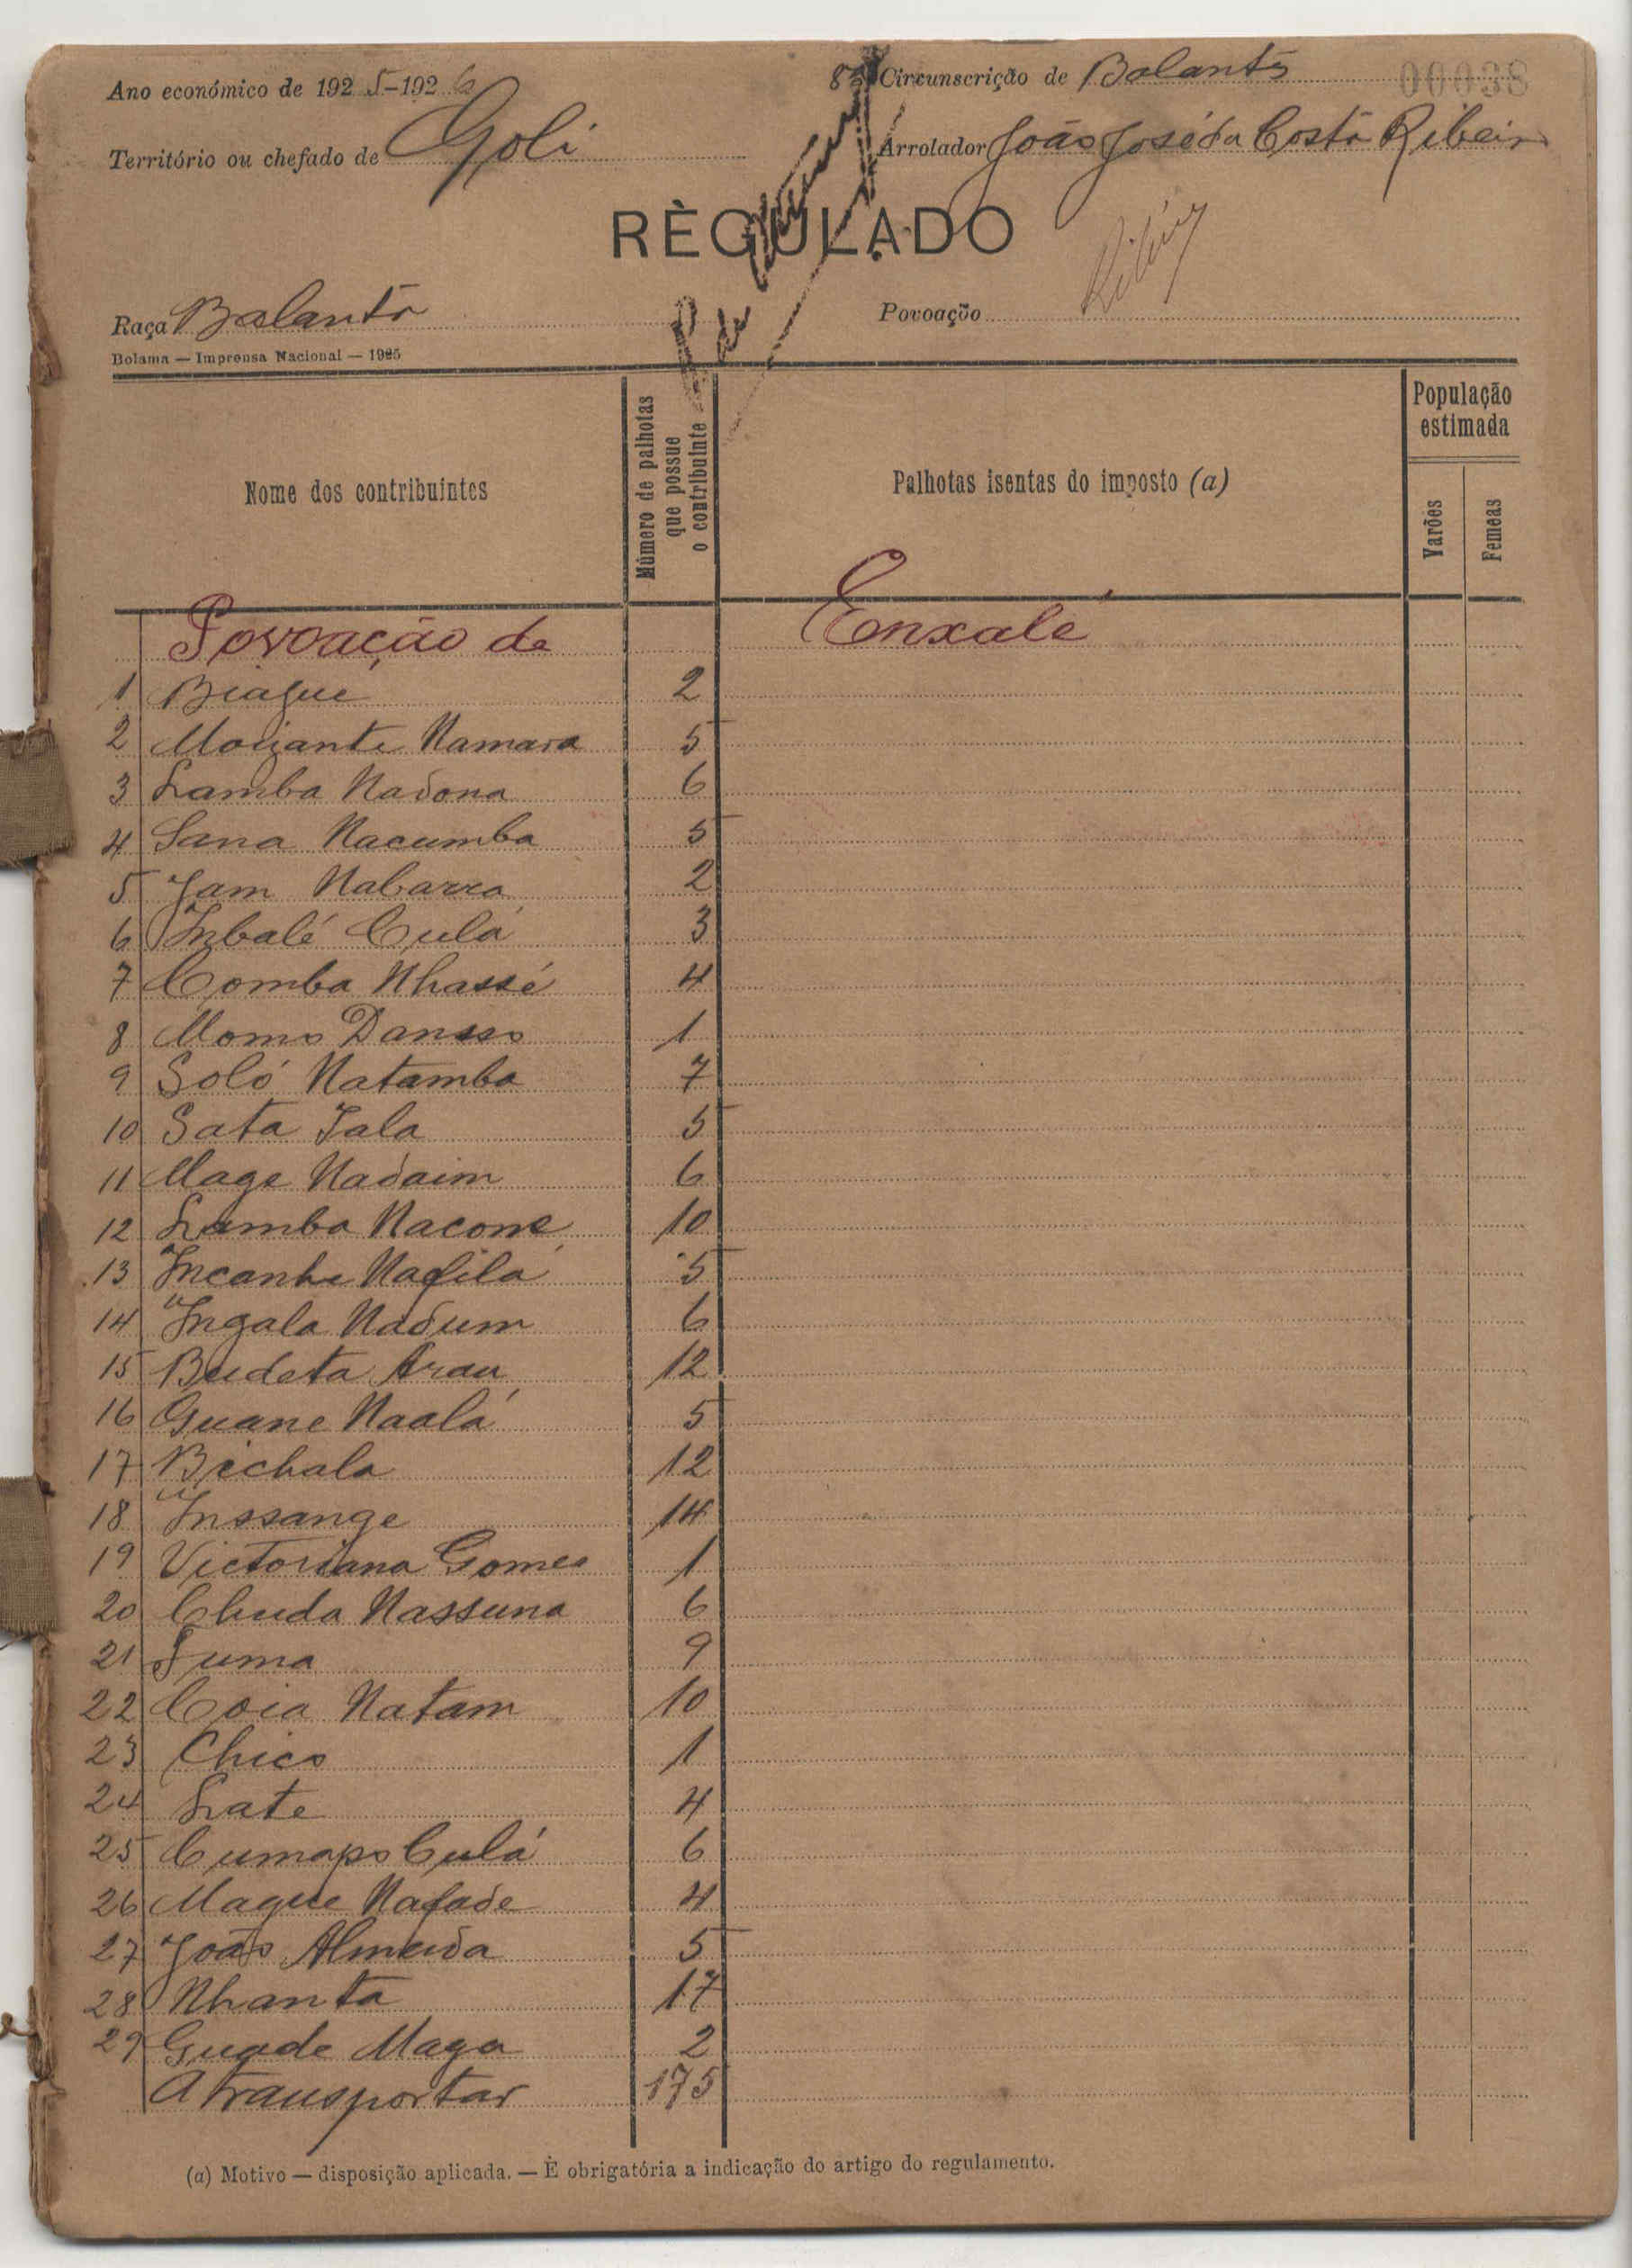 Ano económico de 1925-1926
83 Circunscrição de Balantos
00038
Território ou chefado de Goli
Arrolador João José da Costa Ribeiro
RÈGULADO
Raça Balanta
Povoação
Bolama — Imprensa Nacional — 1925
Nome dos contribuintes
Número de palhotas que possue o contribuinte
Palhotas isentas do imposto (a)
População estimada
Varões
Femeas
Povoação de Enxalé
1 Biague 2
2 Moriante Namara 5
3 Lamba Nadona 6
4 Sana Nacumba 5
5 Jam Nabarra 2
6 Inbalé Culá 3
7 Comba Nhassé 4
8 Momo Dansso 1
9 Soló Natamba 7
10 Sata Jala 5
11 Mage Nadaim 6
12 Lamba Nacone 10
13 Incanha Nafilá 5
14 Ingala Nadum 6
15 Budeta Arau 12
16 Guane Naalá 5
17 Bichala 12
18 Inssange 14
19 Victoriana Gomes 1
20 Chuda Nassuna 6
21 Suma 9
22 Coia Natam 10
23 Chico 1
24 Late 4
25 Cumapo Culá 6
26 Mague Nafade 4
27 João Almeida 5
28 Nhanta 17
29 Guade Maga 2
A transportar 175
(a) Motivo — disposição aplicada. — È obrigatória a indicação do artigo do regulamento.